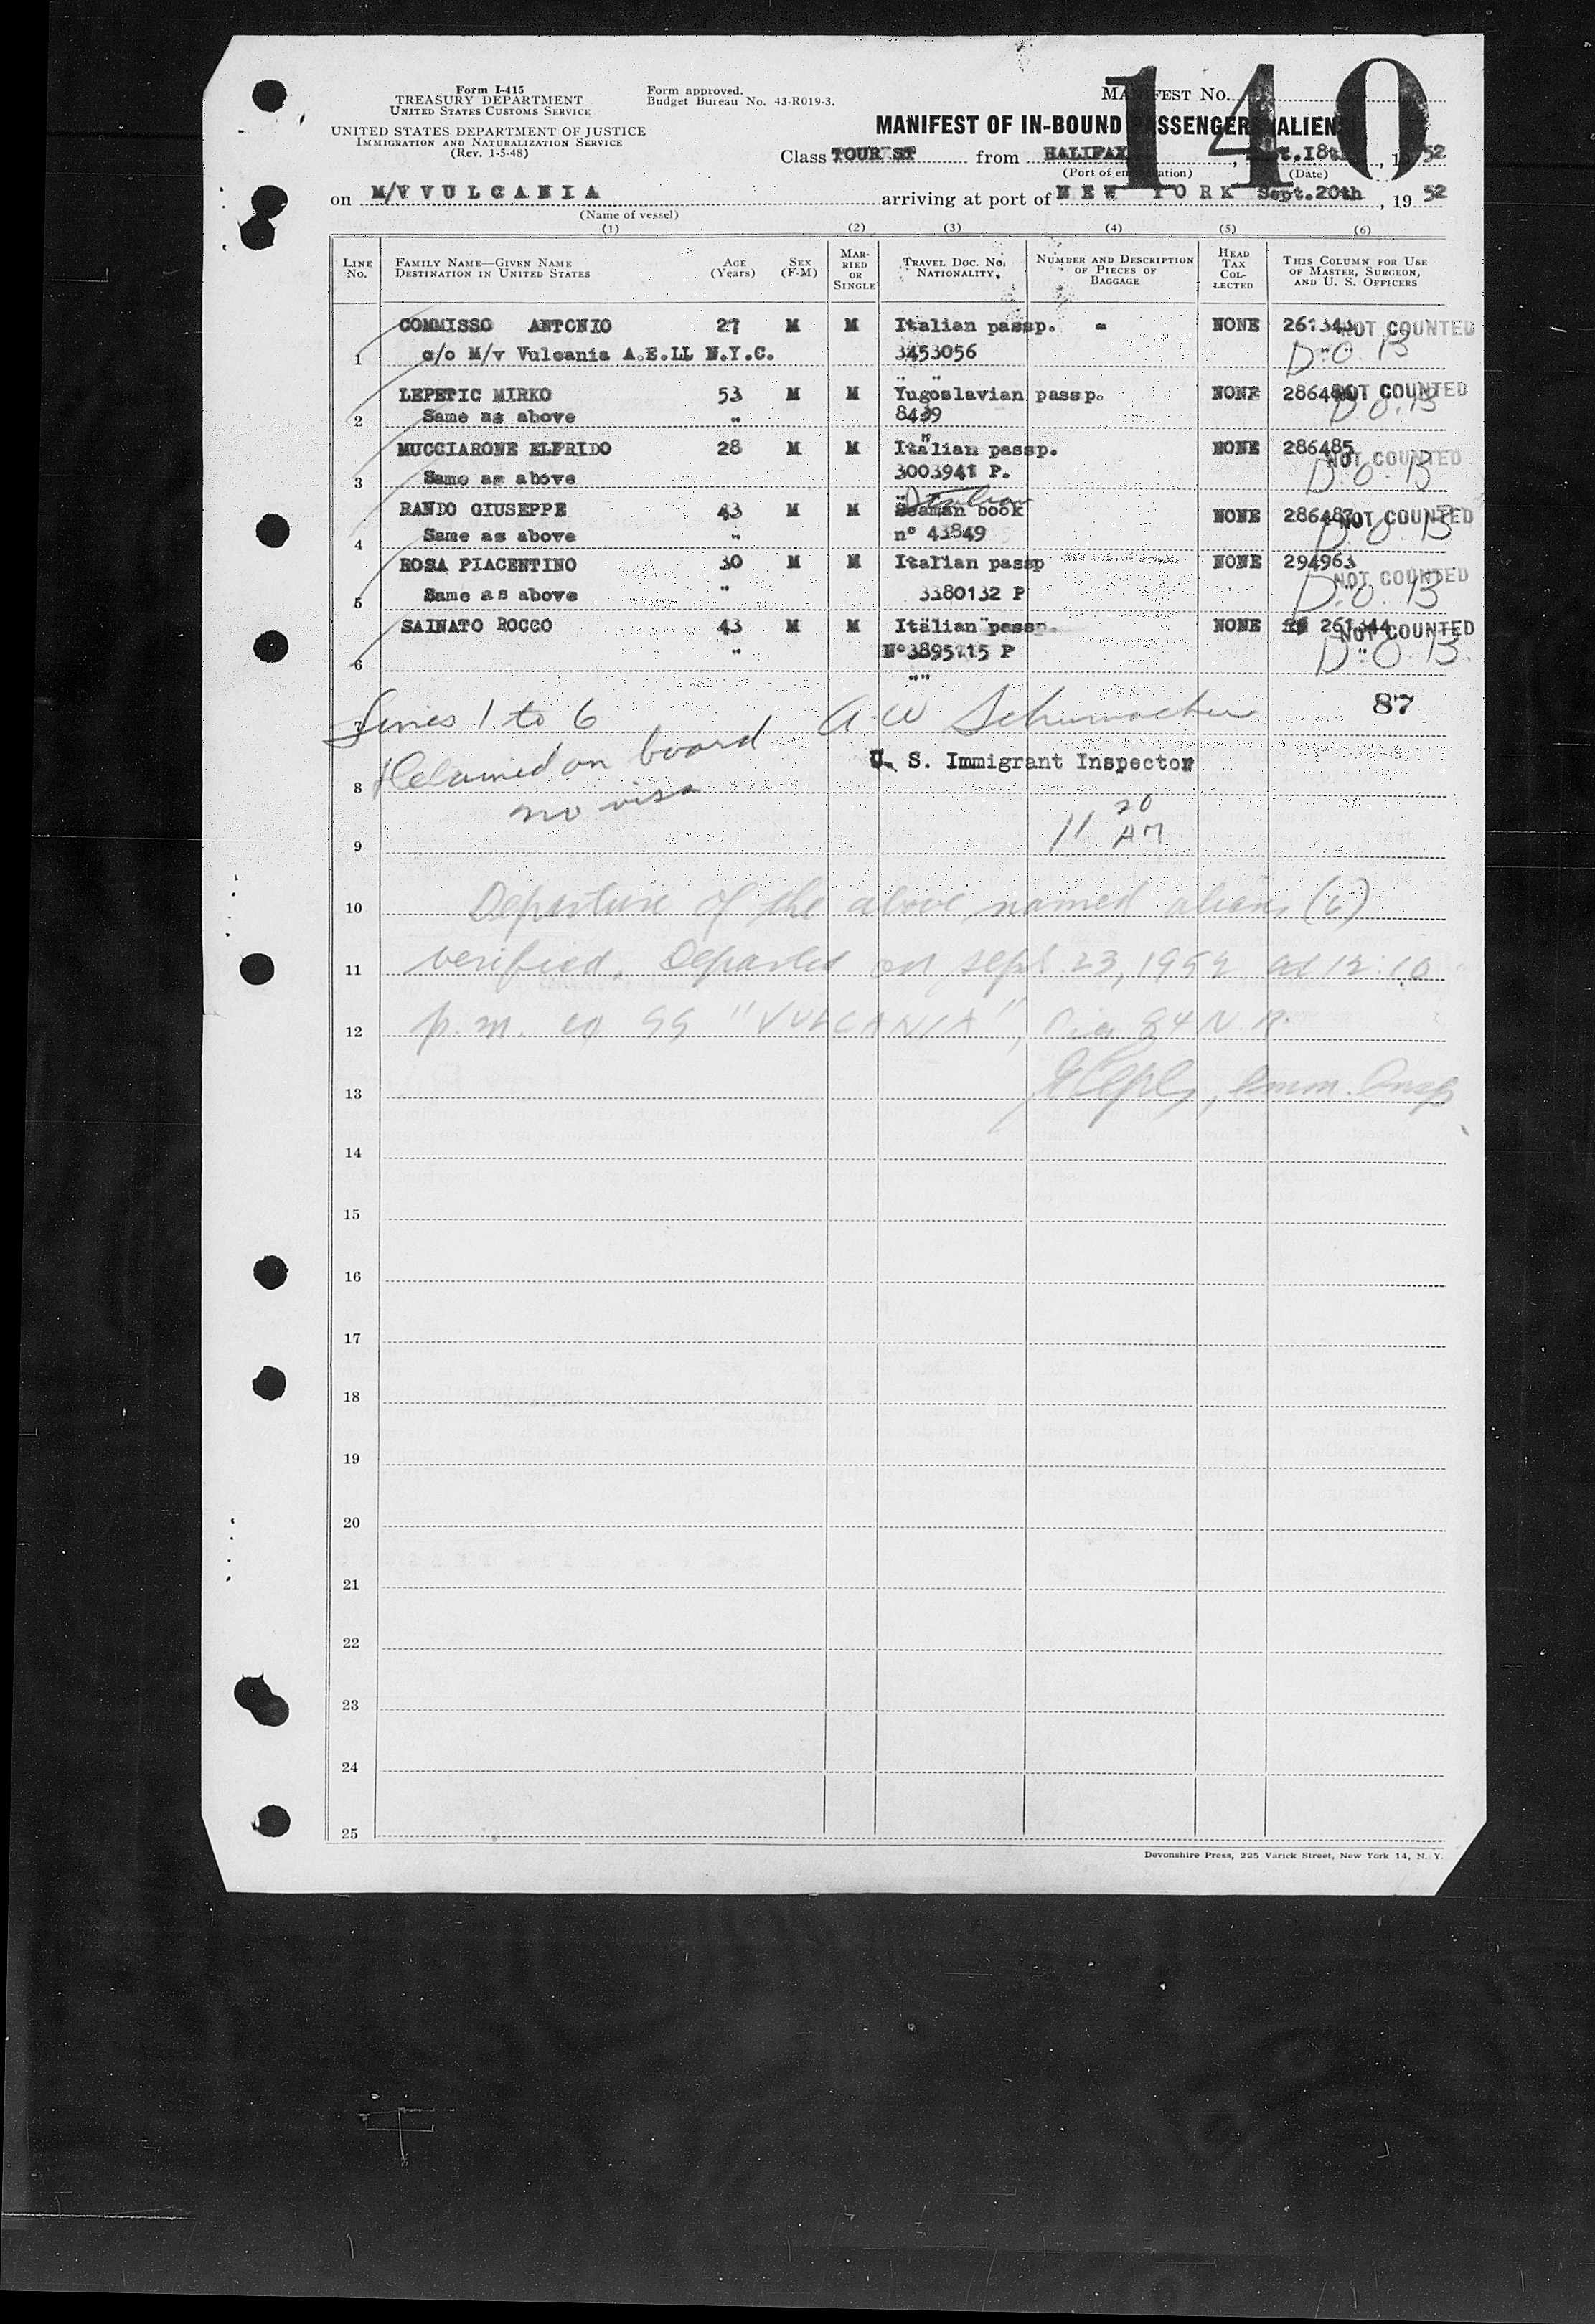 140
Form I-415
TREASURY DEPARTMENT
UNITED STATES CUSTOMS SERVICE
UNITED STATES DEPARTMENT OF JUSTICE
IMMIGRATION AND NATURALIZATION SERVICE
(Rev. 1-5-48)
Form approved.
Budget Bureau No. 43-R019-3.
MANIFEST NO.
MANIFEST OF IN-BOUND PASSENGERS (ALIENS)
Class TOURIST from HALIFAX, Sept.18th, 1952
(Port of embarkation) (Date)
on M/V VULCANIA arriving at port of NEW YORK Sept.20th, 19 52
(Name of vessel)
(1) (2) (3) (4) (5) (6)
LINE No. FAMILY NAME—GIVEN NAME DESTINATION IN UNITED STATES AGE (Years) SEX (F-M) MARRIED OR SINGLE TRAVEL DOC. No. NATIONALITY NUMBER AND DESCRIPTION OF PIECES OF BAGGAGE HEAD TAX COLLECTED THIS COLUMN FOR USE OF MASTER, SURGEON, AND U. S. OFFICERS
COMMISSO ANTONIO 27 M M Italian passp. - NONE 261343 NOT COUNTED
1 c/o M/v Vulcania A.E.LL N.Y.C. 3453056 D.O.B
" "
LEPETIC MIRKO 53 M M Yugoslavian passp. NONE NOT COUNTED
2 Same as above " 8439 D.O.B
"
MUCCIARONE ELFRIDO 28 M M Italian passp. NONE 286485 NOT COUNTED
3 Same as above 3003941 P. D.O.B
" Italian
RANDO GIUSEPPE 43 M M Seaman book NONE 286487 NOT COUNTED
4 Same as above " n° 43849 D.O.B
ROSA PIACENTINO 30 M M Italian passp NONE 294963 NOT COUNTED
5 Same as above " 3380132 P D.O.B
SAINATO ROCCO 43 M M Italian passp. NONE 261344 NOT COUNTED
6 " N°3895115 P D.O.B.
""
87
7 Lines 1 to 6 A W Schumacher
Detained on board U. S. Immigrant Inspector
8 no visa
11 20 AM
9
10 Departure of the above named aliens (6)
11 verified. Departed on Sept 23, 1952 at 12:10
12 p.m. on SS "VULCANIA", Pier 84 N.R.
13 Imm. Insp
14
15
16
17
18
19
20
21
22
23
24
25
Devonshire Press, 225 Varick Street, New York 14, N. Y.